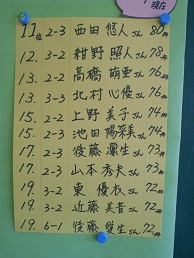 現在
11位 2-3 西田 悠人さん 80冊
12. 3-2 紺野 照人さん 78冊
13. 2-2 高橋 萌亜さん 76冊
13. 3-3 北村 心優さん 76冊
15. 2-2 上野 美子さん 74冊
15. 2-3 池田 陽菜さん 74冊
17. 2-2 後藤 凜生さん 73冊
17. 2-3 山本 秀夫さん 73冊
19. 3-2 東 優衣さん 72冊
19. 4-2 近藤 美音さん 72冊
19. 6-1 後藤 生さん 72冊